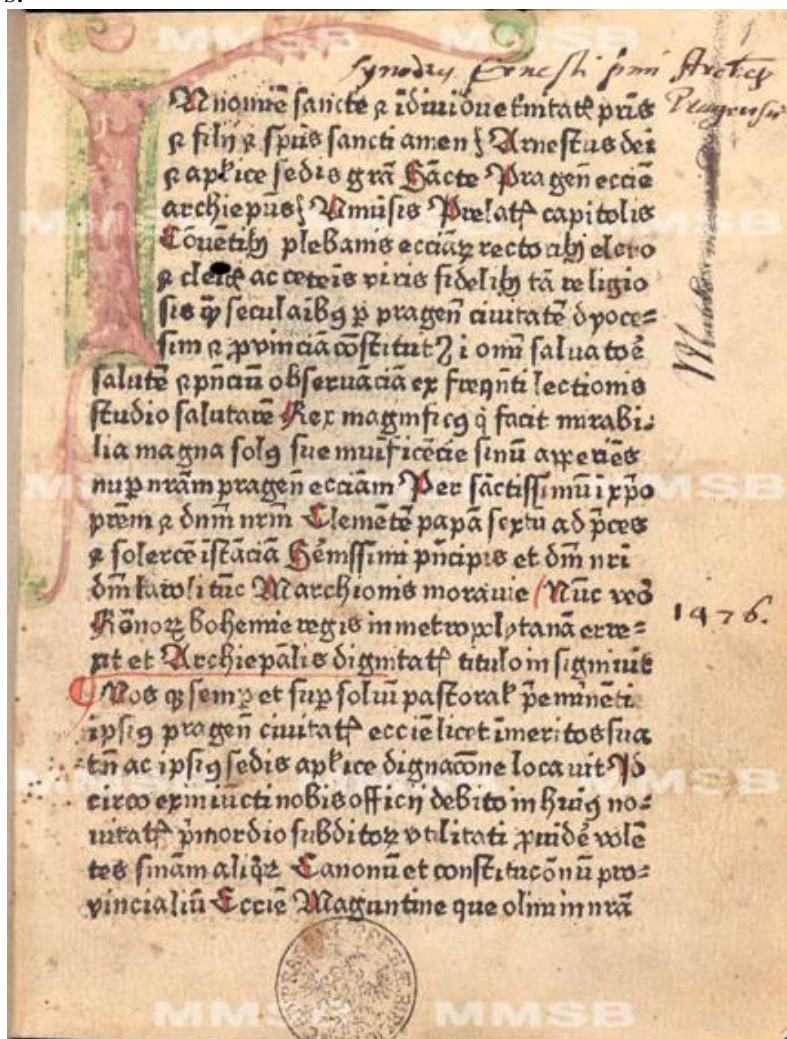 s.
Synodus Ernesti primi Archiep
Pragensis
1
IN nomīe sancte ꝛ īdiuidue tinitatꝭ pr̄is
ꝛ filij ꝛ sp̄us sancti amen Arnestus dei
ꝛ aplice sedis grā Sācte Pragen̄ eccīe
archiepūs Uniūsis Prelatꝭ capitolis
Cōuētibꝫ plebanis ecciaꝝ rectoribꝫ clero
ꝛ clericꝭ ac ceteīs viris fidelibꝫ tā religio
sis qꝫ seculaībꝰ ꝑ pragen̄ ciuitatē dyoce⸗
sim ꝛ ꝓvinciā cōstitutꝭ i omī saluatoē
salutē ꝛ pn̄ciū obseruāciā ex freqn̄ti lectionis
studio salutarē Rex magnificꝰ q̇ facit mirabi⸗
lia magna solꝰ sue muīficēcie sinū apperiēs
nuꝑ nrām pragen̄ ecciām Per sāctissimū i xp̄o
prēm ꝛ dn̄m nrm̄ Clemētē papā sextū ad p̄ces
ꝛ solercē īstāciā Sēnissimi pn̄cipis et dn̄i nri
dn̄i karoli tūc Marchionis morauie Nūc veō
Rōnorꝝ bohemie regis in metropolytanā erre⸗
xit et Archiepālis dignitatꝭ titulo insigniuit
Nos qꝫ semꝑ et suꝑ soliū pastoral̄ p̄eminēti
ipsiꝰ pragen̄ ciuitatꝭ eccīe licet īmeritos sua
tn̄ ac ipsiꝰ sedis aplice dignacōne locauit Id
circo ex iniucti nobis officij debito in huiꝰ no⸗
uitatꝭ p̄mordio subditoꝝ vtilitati ꝓuidē volē
tes sinām aliqꝝ Canonū et constitucōnū pro⸗
vincialiū Eccīe Maguntine que olim in nrā
1476.
MMSB